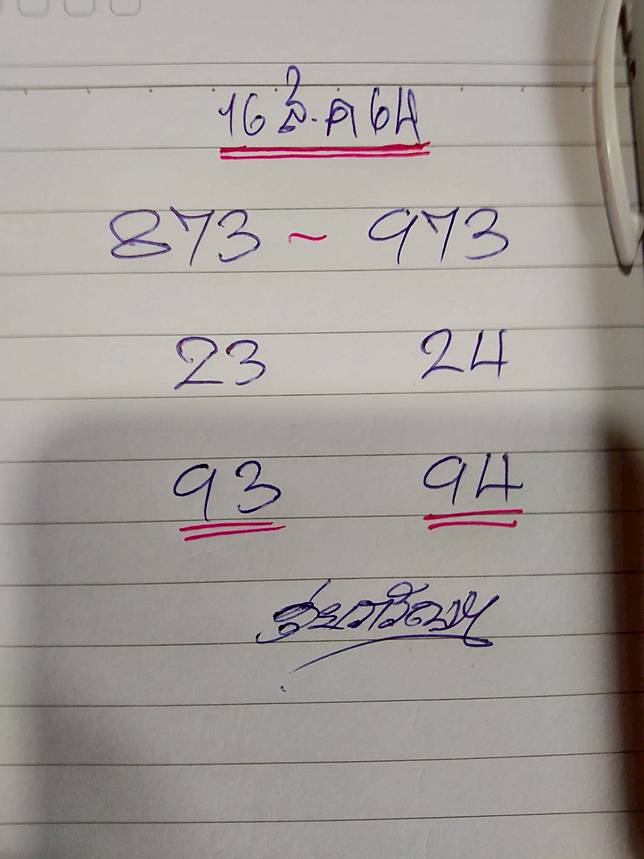 16 64
873 ~ 973
23 24
93 94